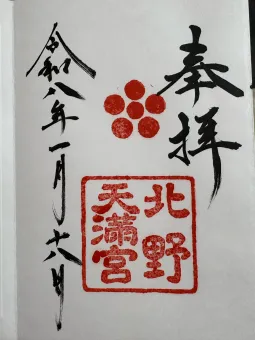 奉拝
北野
天満宮
令和八年一月十八月